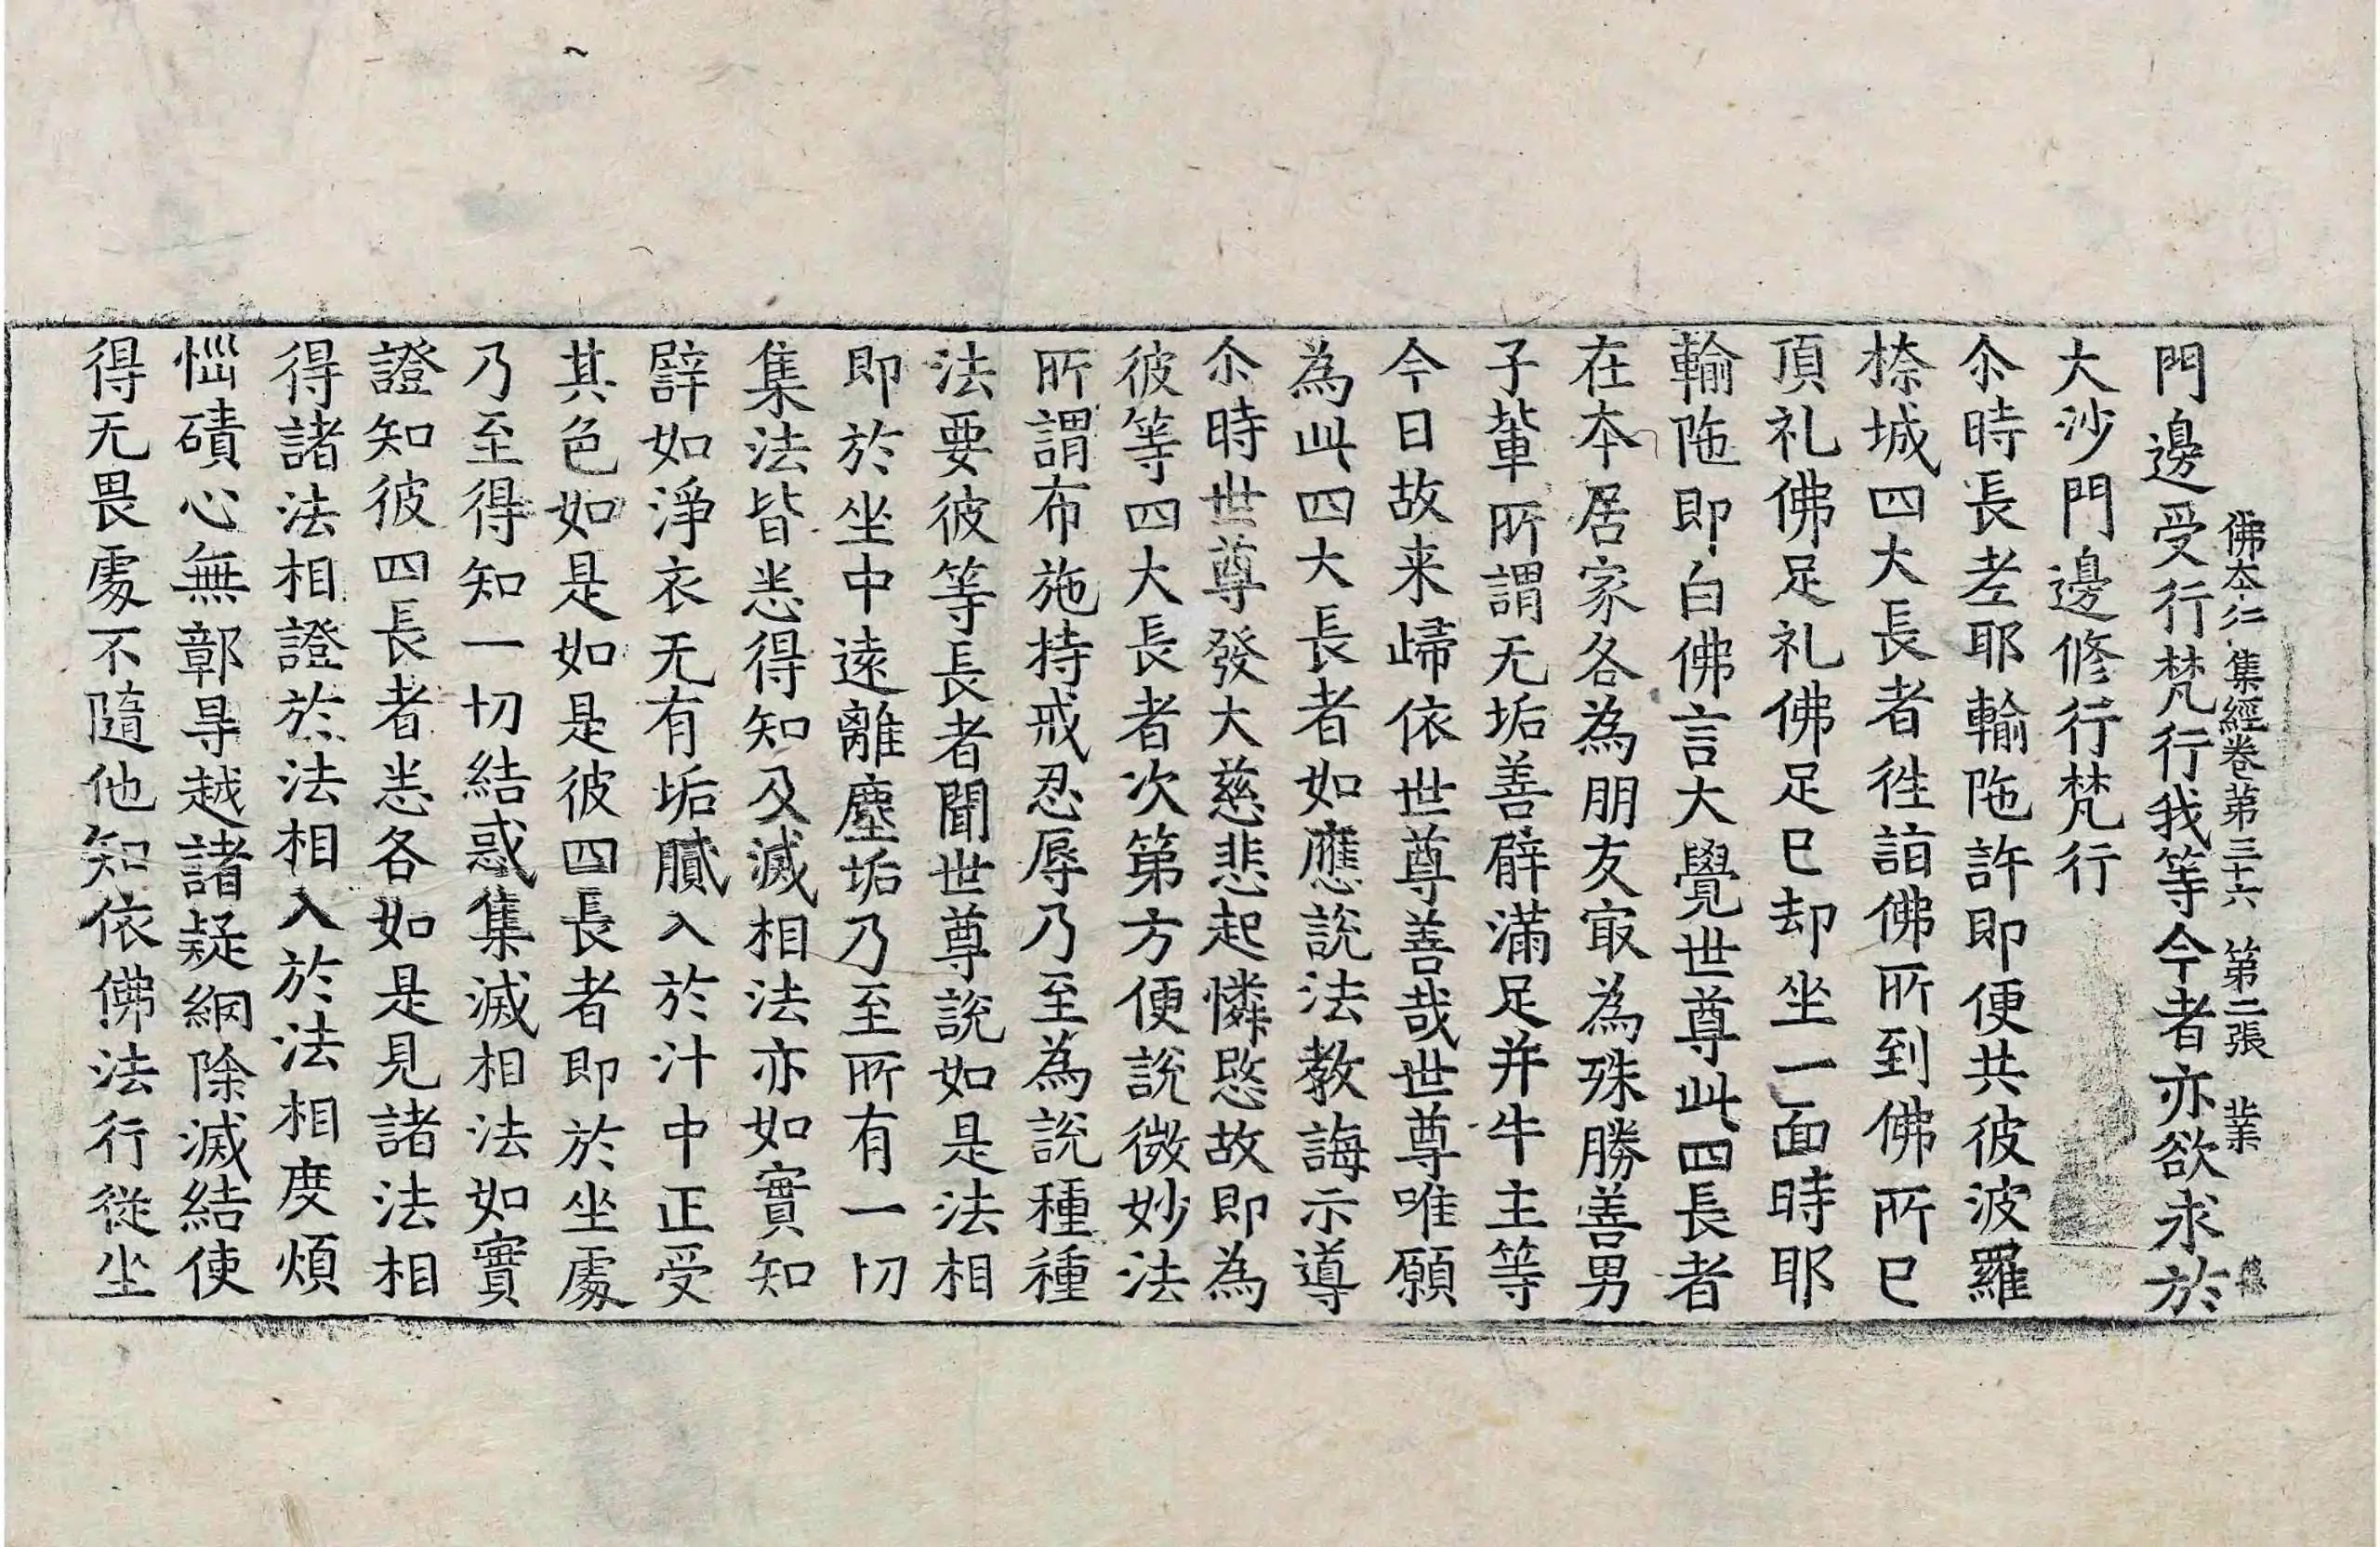 佛本行集經卷第三十六 第二張 業
門邊受行梵行我等今者亦欲求於
大沙門邊修行梵行
尒時長老耶輸陁許即便共彼波羅
㮈城四大長者徃詣佛所到佛所已
頂礼佛足礼佛足已却坐一面時耶
輸陁即白佛言大覺世尊此四長者
在本居家各為朋友㝡為殊勝善男
子軰所謂无垢善臂滿足并牛主等
今日故来歸依世尊善哉世尊唯願
為此四大長者如應說法教誨示導
尒時世尊發大慈悲起憐愍故即為
彼等四大長者次第方便說微妙法
所謂布施持戒忍辱乃至為說種種
法要彼等長者聞世尊說如是法相
即於坐中遠離塵垢乃至所有一切
集法皆悉得知及滅相法亦如實知
譬如淨衣无有垢膩入於汁中正受
其色如是如是彼四長者即於坐處
乃至得知一切結惑集滅相法如實
證知彼四長者悉各如是見諸法相
得諸法相證於法相入於法相度煩
惱磧心無鄣㝵越諸疑網除滅結使
得无畏處不隨他知依佛法行從坐